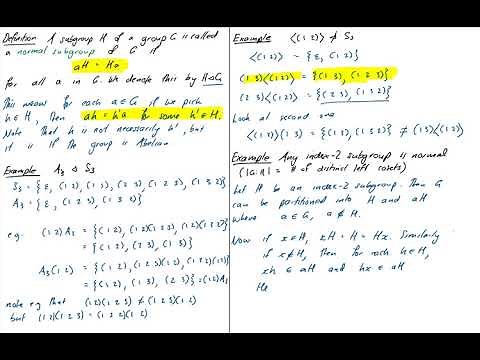 Definition A subgroup H of a group G is called
a normal subgroup of G if
aH = Ha
for all a in G. We denote this by H◁G
This means for each a∈G if we pick
h∈H, then ah = h'a for some h'∈H.
Note that h is not necessarily h', but
it is if the group is Abelian
Example A₃ ◁ S₃
S₃ = {ε, (1 2), (1 3), (2 3), (1 2 3), (1 3 2)}
A₃ = {ε, (1 2 3), (1 3 2)}
e.g. (1 2)A₃ = {(1 2), (1 2)(1 2 3), (1 2)(1 3 2)}
= {(1 2), (2 3), (1 3)}
A₃(1 2) = {(1 2), (1 2 3)(1 2), (1 3 2)(1 2)}
= {(1 2), (1 3), (2 3)} = (1 2)A₃
note e.g. that (1 2)(1 2 3) ≠ (1 2 3)(1 2)
but (1 2)(1 2 3) = (1 3 2)(1 2)
Example ⟨(1 2)⟩ ⋪ S₃
⟨(1 2)⟩ = {ε, (1 2)}
(1 3)⟨(1 2)⟩ = {(1 3), (1 2 3)}
(2 3)⟨(1 2)⟩ = {(2 3), (1 3 2)}
Look at second one
⟨(1 2)⟩(1 3) = {(1 3), (1 3 2)} ≠ (1 3)⟨(1 2)⟩
Example Any index-2 subgroup is normal
(|G:H| = # of distinct left cosets)
Let H be an index-2 subgroup. Then G
can be partitioned into H and aH
where a∈G, a∉H.
Now if x∈H, xH = H = Hx. Similarly
if x∉H, then for each h∈H,
xh ∈ aH and hx ∈ aH